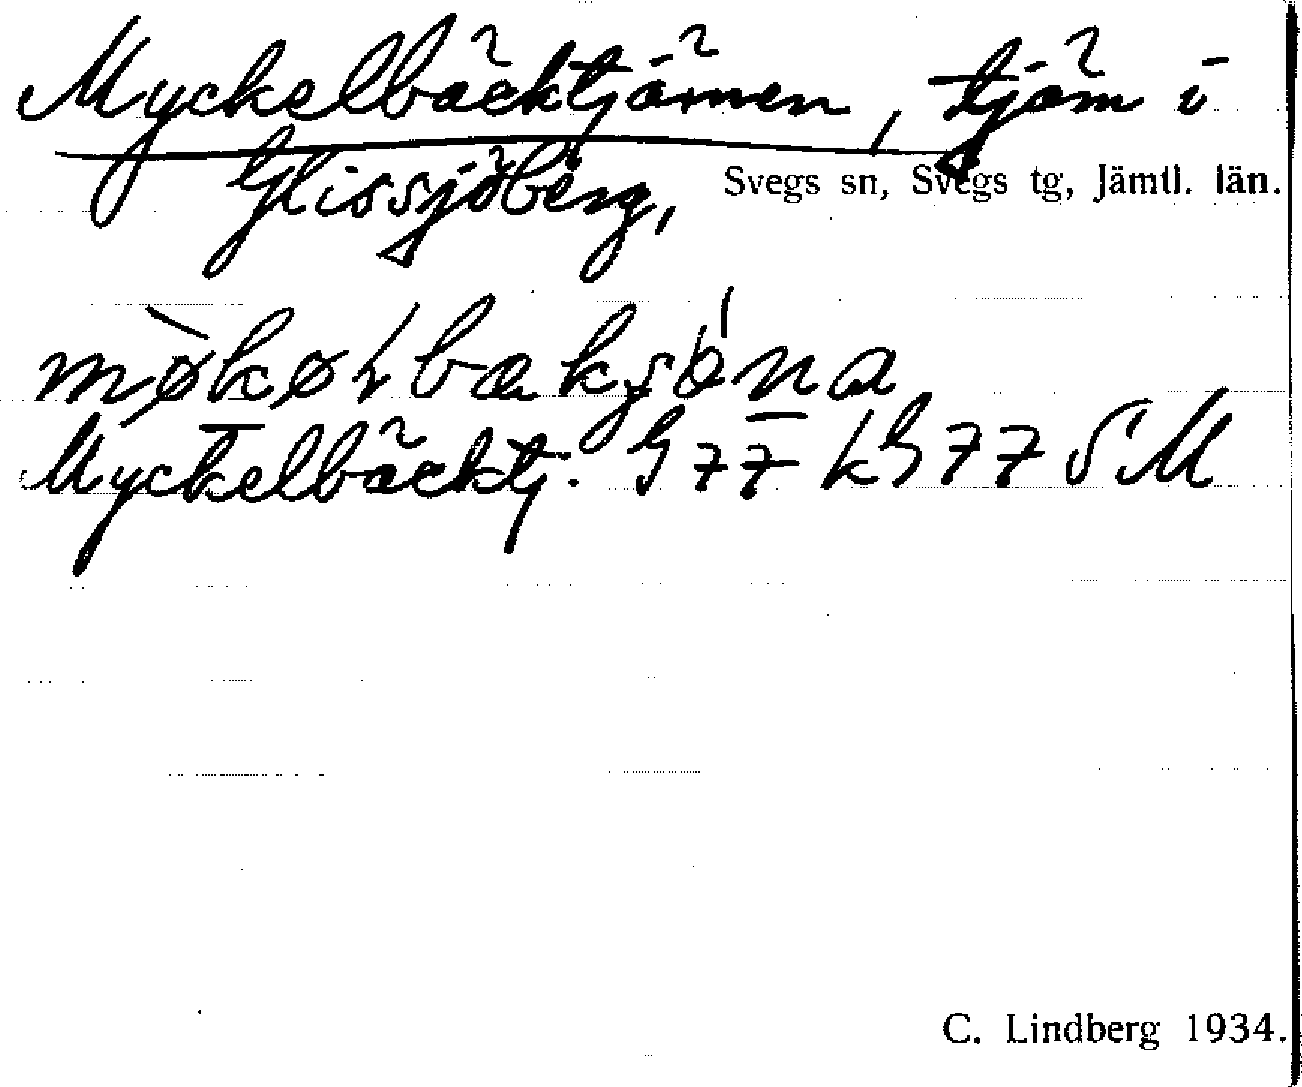 Myckelbäcktjärnen, tjärn i
Glissjöberg, Svegs sn, Svegs tg, Jämtl. län.
Myckelbäcktj. G 77 kG 77 SM
C. Lindberg 1934.